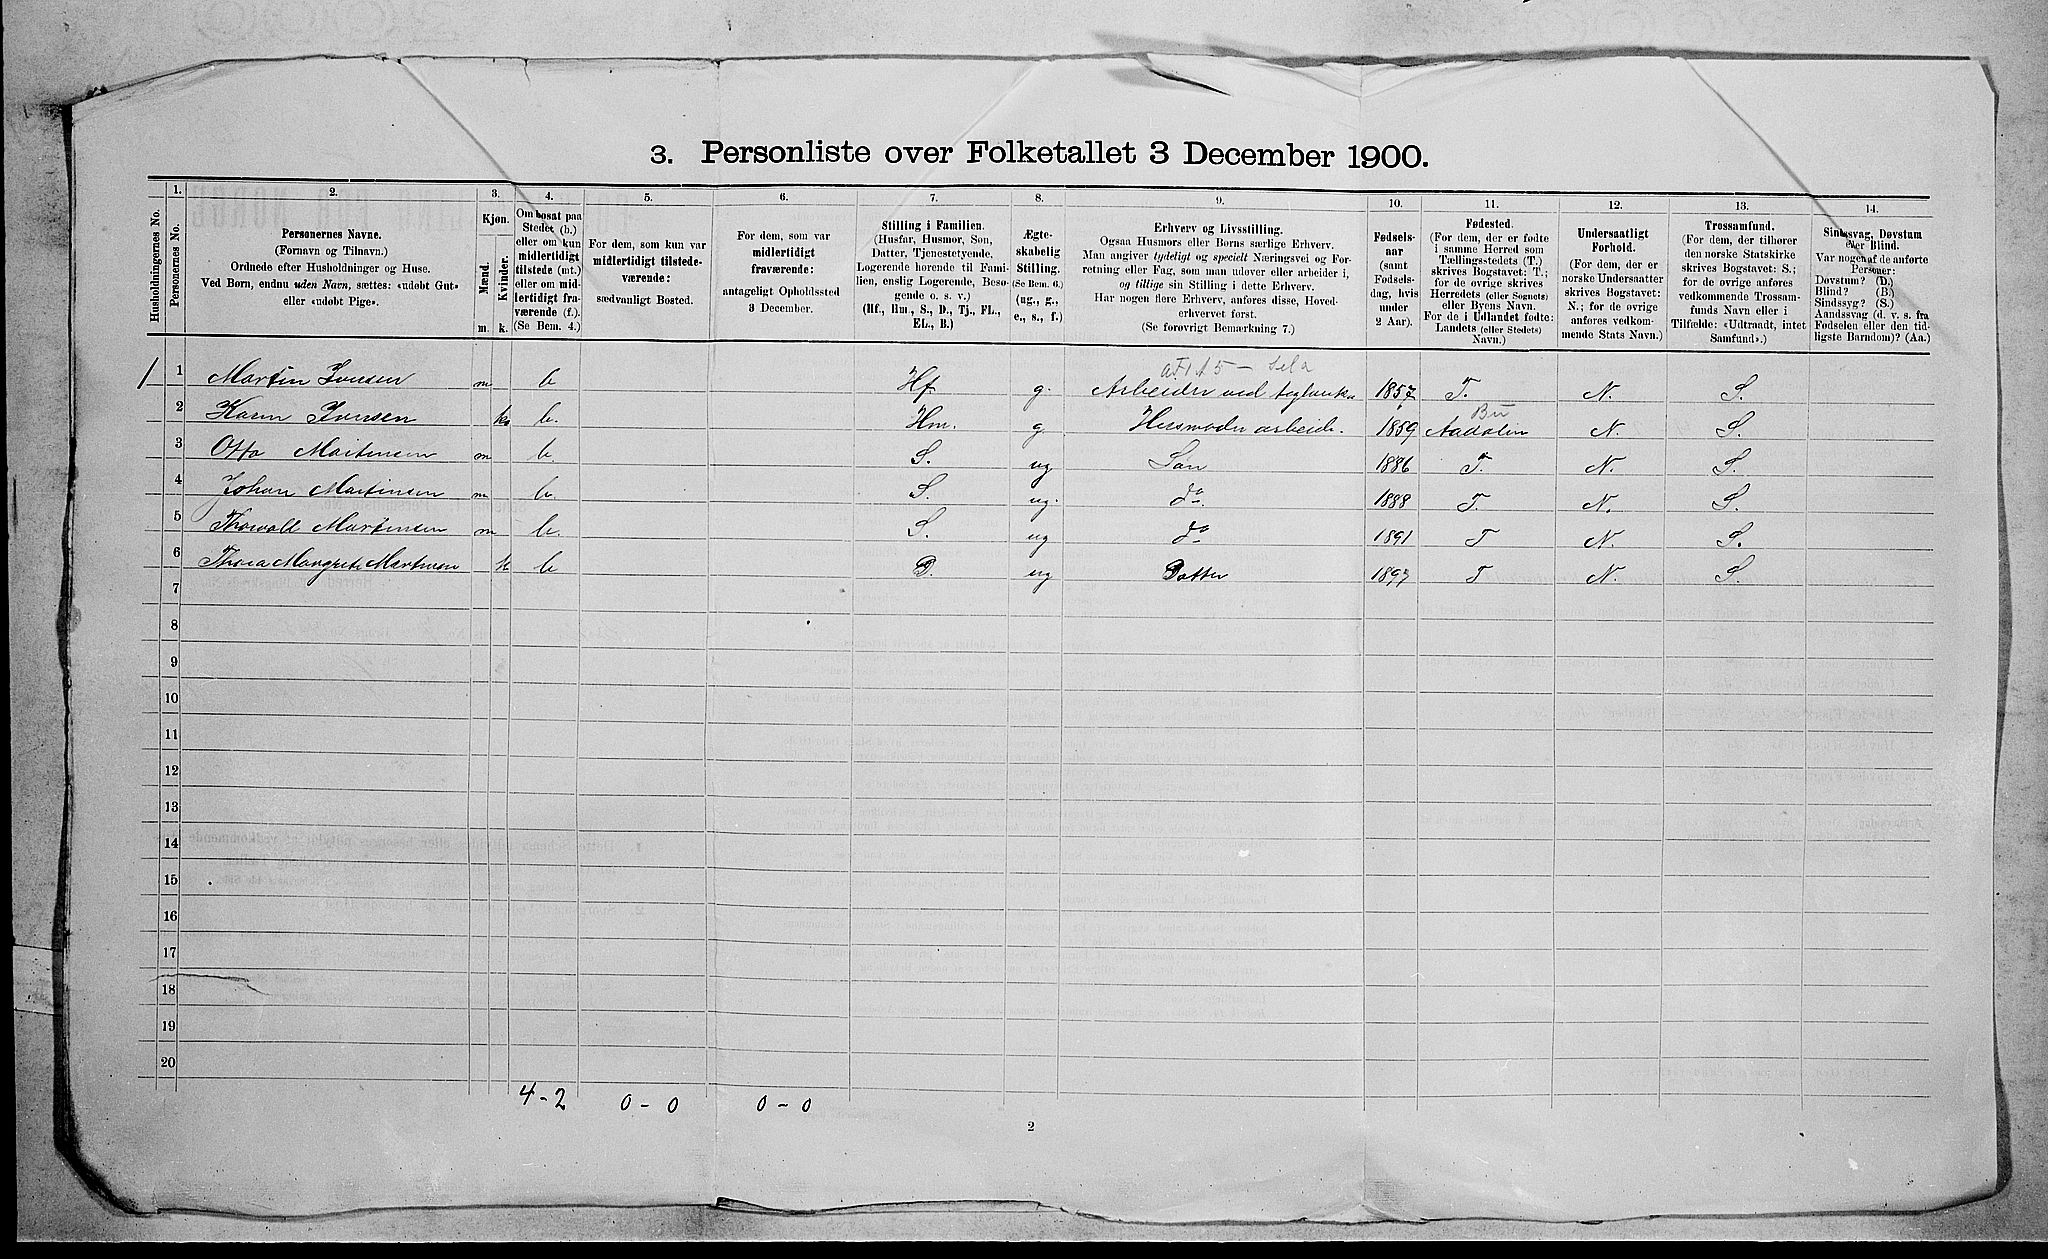 3. Personliste over Folketallet 3 December 1900.
1. 2. 3. 4. 5. 6. 7. 8. 9. 10. 11. 12. 13. 14.
Husholdningernes No.
Personernes No.
Personernes Navne.
(Fornavn og Tilnavn.)
Ordnede efter Husholdninger og Huse.
Ved Børn, endnu uden Navn, sættes: «udøbt Gut»
eller «udøbt Pige».
Kjøn.
Mænd.
Kvinder.
m. k.
Om bosat paa
Stedet (b.)
eller om kun
midlertidigt
tilstede (mt.)
eller om mid-
lertidigt fra-
værende (f.).
(Se Bem. 4.)
For dem, som kun var
midlertidigt tilstede-
værende:
sædvanligt Bosted.
For dem, som var
midlertidigt
fraværende:
antageligt Opholdssted
3 December.
Stilling i Familien.
(Husfar, Husmor, Søn,
Datter, Tjenestetyende,
Logerende hørende til Fami-
lien, enslig Logerende, Besø-
gende o. s. v.)
(Hf., Hm., S., D., Tj., FL.,
EL., B.)
Ægte-
skabelig
Stilling.
(Se Bem. 6.)
(ug., g.,
e., s., f.)
Erhverv og Livsstilling.
Ogsaa Husmors eller Børns særlige Erhverv.
Man angiver tydeligt og specielt Næringsvei og For-
retning eller Fag, som man udøver eller arbeider i,
og tillige sin Stilling i dette Erhverv.
Har nogen flere Erhverv, anføres disse, Hoved-
erhvervet først.
(Se forøvrigt Bemærkning 7.)
Fødsels-
aar
(samt
Fødsels-
dag, hvis
under
2 Aar).
Fødested.
(For dem, der er fødte
i samme Herred som
Tællingsstedets (T.)
skrives Bogstavet: T.;
for de øvrige skrives
Herredets (eller Sognets)
eller Byens Navn.
For de i Udlandet fødte:
Landets (eller Stedets)
Navn.)
Undersaatligt
Forhold.
(For dem, der er
norske Undersaatter
skrives Bogstavet:
N.; for de øvrige
anføres vedkom-
mende Stats Navn.)
Trossamfund.
(For dem, der tilhører
den norske Statskirke
skrives Bogstavet: S.;
for de øvrige anføres
vedkommende Trossam-
funds Navn eller i
Tilfælde: «Udtraadt, intet
Samfund».)
Sindssvag, Døvstum
eller Blind.
Var nogen af de anførte
Personer:
Døvstum? (D.)
Blind? (B.)
Sindssyg? (S.)
Aandssvag (d. v. s. fra
Fødselen eller den tid-
ligste Barndom)? (Aa.)
1 Martin Iversen m b Hf g. Arbeider ved 1857 T. N. S.
2 Karen Iversen k b. Hm. g. Husmoder arbeide. 1859 Aadalen N. S.
3 Otto Martinsen m b. S. ug Søn 1886 T. N. S.
4 Johan Martinsen m b. S. ug. do 1888 T. N. S.
5 Thorvall Martinsen m b. S. ug do 1891 T N. S.
6 Thora Margrete Martinsen k b D. ug Datter 1897 T N. S.
7
8
9
10
11
12
13
14
15
16
17
18
19
20
4 - 2 0 - 0 0 - 0
2